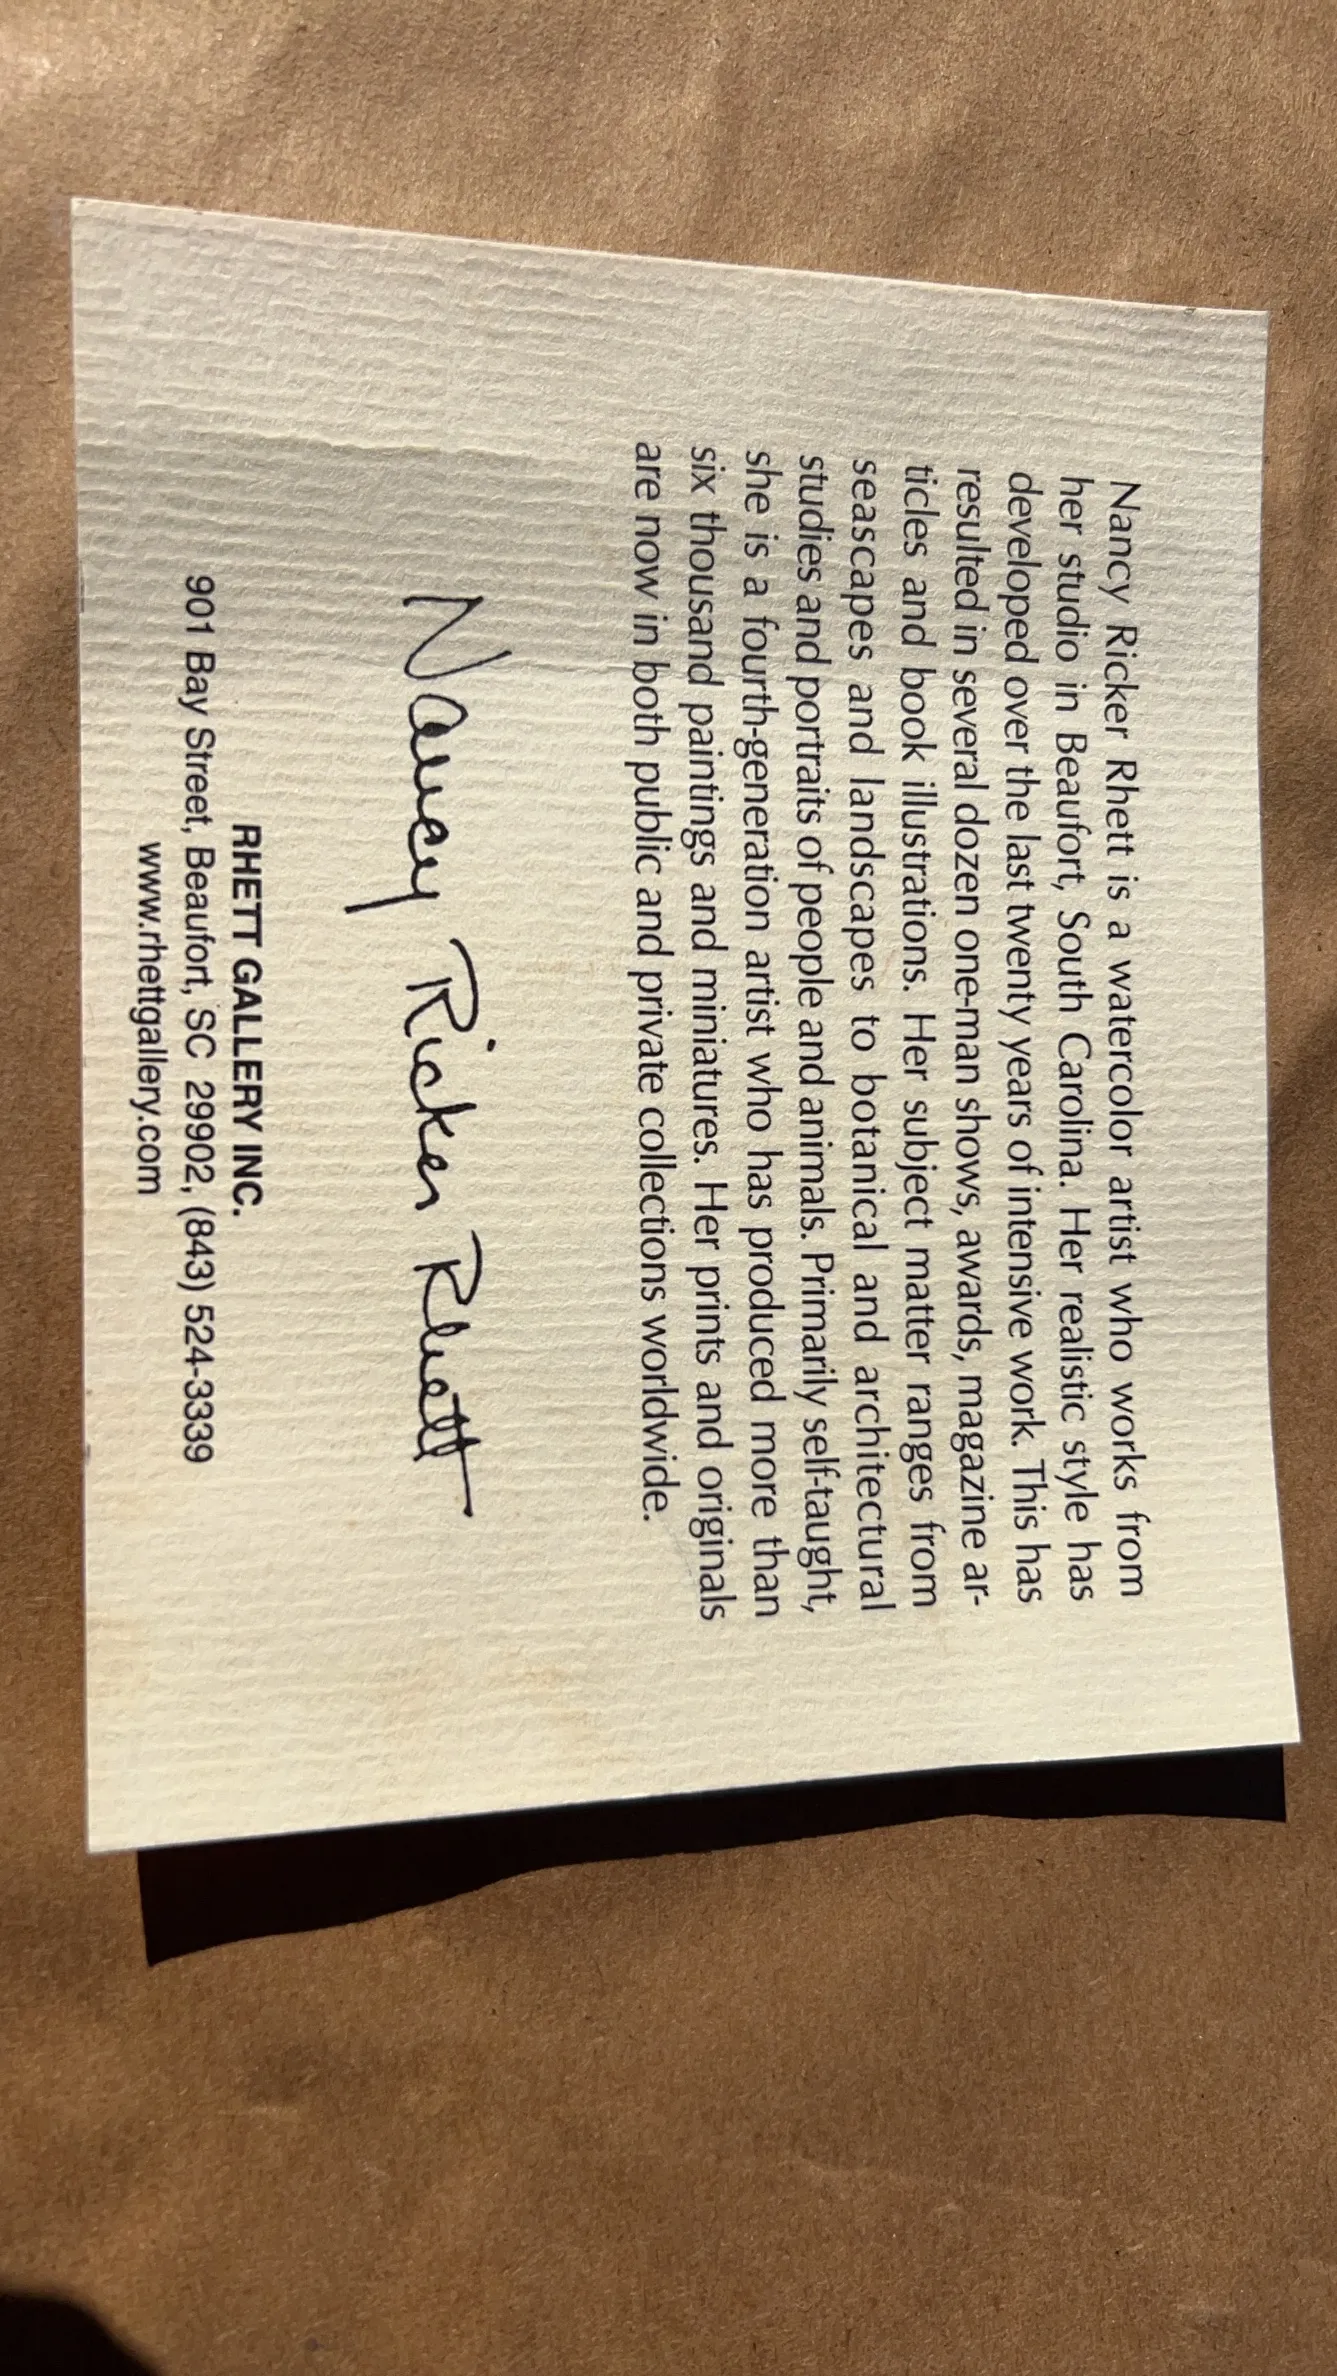 Nancy Ricker Rhett is a watercolor artist who works from
her studio in Beaufort, South Carolina. Her realistic style has
developed over the last twenty years of intensive work. This has
resulted in several dozen one-man shows, awards, magazine ar-
ticles and book illustrations. Her subject matter ranges from
seascapes and landscapes to botanical and architectural
studies and portraits of people and animals. Primarily self-taught,
she is a fourth-generation artist who has produced more than
six thousand paintings and miniatures. Her prints and originals
are now in both public and private collections worldwide.
Nancy Ricker Rhett
RHETT GALLERY INC.
901 Bay Street, Beaufort, SC 29902, (843) 524-3339
www.rhettgallery.com